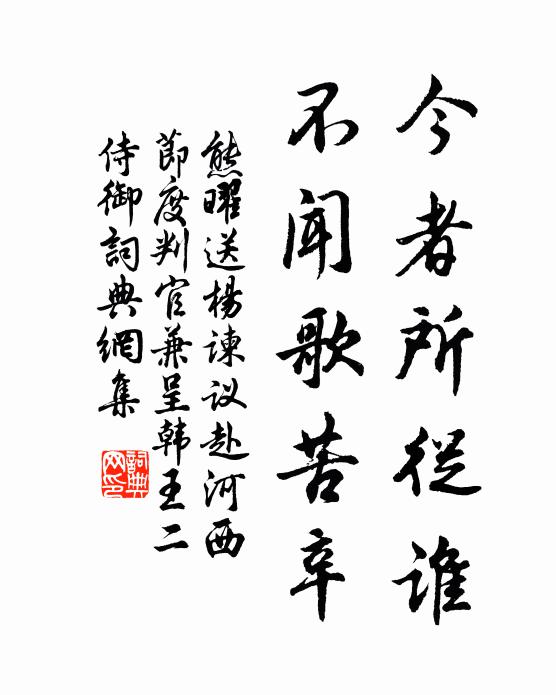 今者所從谁
不闻歌苦辛
熊曜送楊諫议赴河西
節度判官兼呈韩王二
侍御詞典網集
詞典网印